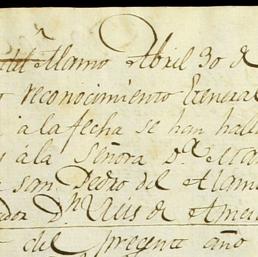 del Alamo Abril 30 de
reconocimiento General
a la fecha se han hall
á la Señora D.ª Ma
San Pedro del Alamo
dor D.n Luis de
del presente año